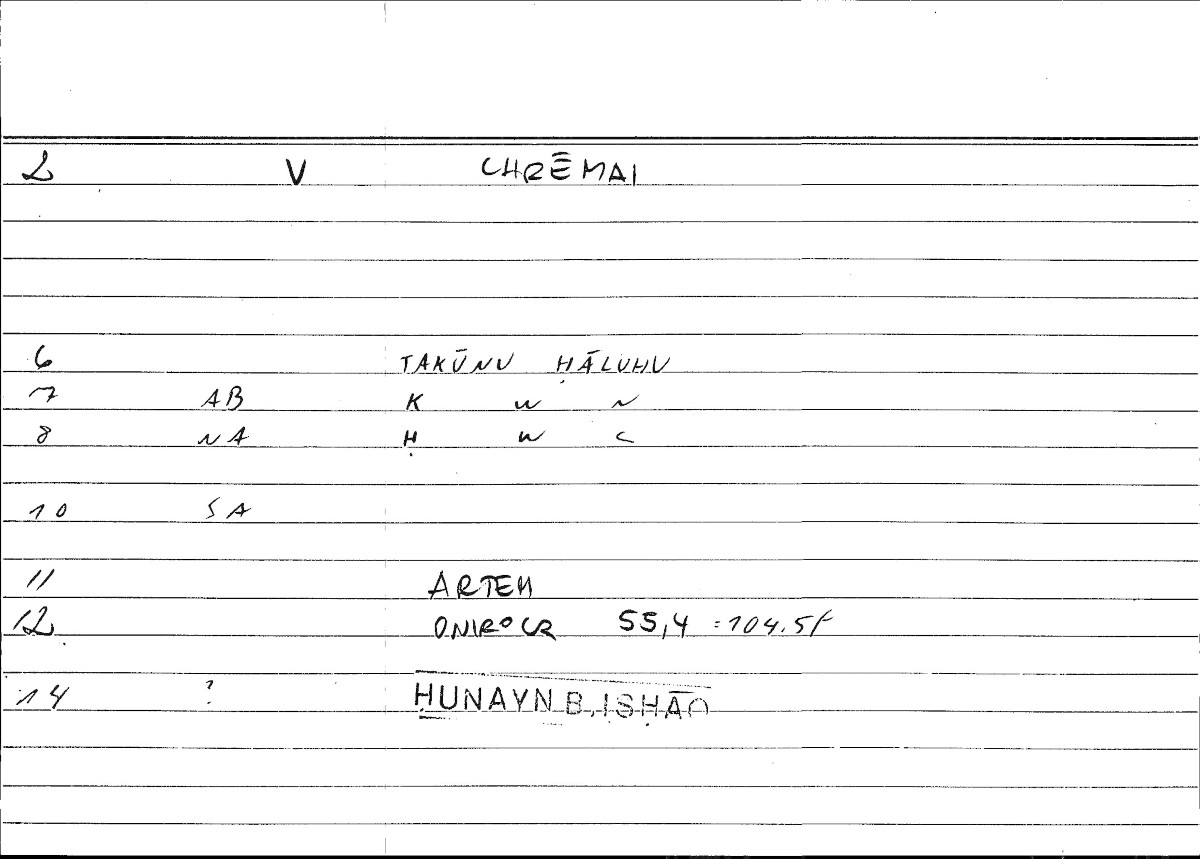 2 V CHRĒMAI
6 TAKŪNU ḤĀLUHU
7 AB K W N
8 NA Ḥ W L
10 SA
11 ARTEM
12 ONIROCR 55,4 = 104.5f
14 ? ḤUNAYN B. ISḤĀQ